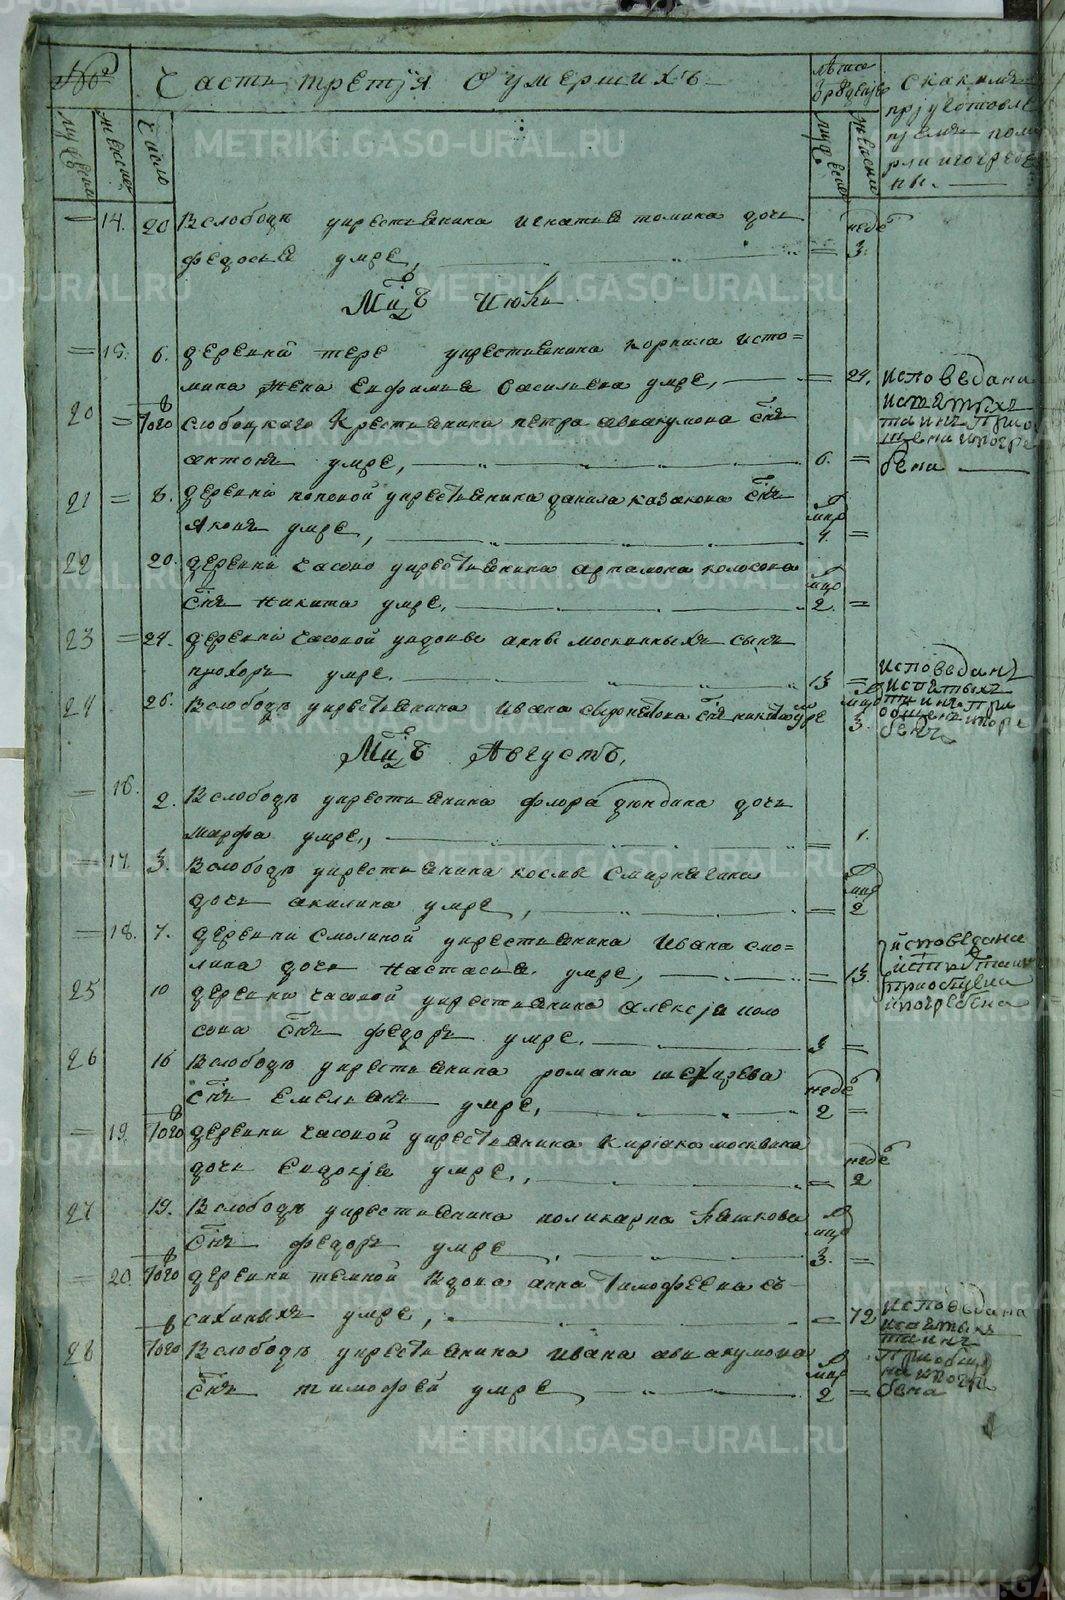 №
Часть третiя О умершихъ
лѣта
мужеска
женска
число
мужеска
женска
с какимъ
прiуготовле
нiемъ пом
рли и погребе
ны.
= 14. 20 В слободѣ крестьянина Игнатья томина дочь недѣ
Федосья умре, = 3.
Мцъ Июль
= 15. 6. деревни тере крестьянина Корнила Исто=
мина жена Евфимия Василиева умре, = 24. исповѣдана
и святыхъ
таинъ прио
щена и погре
бена
20 = того слободскаго крестьянина петра аввакумова снъ
антонъ умре, 6. =
21 = 8. деревни поповой крестьянина данила казакова снъ
Яковъ умре, мцо 4. =
22 20. деревни часово крестьянина артамона колосова мцо
снъ Никита умре, 2. =
23 = 24. деревни Часовой вдовы анны москвиныхъ сынъ
прохоръ умре. 13 = исповѣданъ
и святыхъ
таинъ при
общенъ и погре
бенъ
24 26. В слободѣ крестьянина Ивана снъ никита умре мцо 3.
Мцъ Августъ.
= 16. 2. В слободѣ крестьянина флора дюндина дочь
марфа умре, = 1.
= 17. 3. В слободѣ крестьянина космы Смирнягина мцо
дочь акилина умре, = 2
= 18. 7. деревни Смолиной крестьянина Ивана смо=
лина дочь Настасья умре, = 13. исповѣдана
и свт таинъ
приобщена
и погребена
25 10 деревни часовой крестьянина алексiя коло
сова снъ федоръ умре. 3 =
26 16 В слободѣ крестьянина романа недѣ
снъ Емельянъ умре, 2 =
= 19. того деревни Часовой крестьянина Кирiака москвина недѣ
дочь Евдокiя умре, = 2
27 19. В слободѣ крестьянина поликарпа Пѣшкова мцо
снъ федоръ умре 3. =
= 20. того деревни темной вдова анна Тимофеева съ
умре, = 72 исповѣдана
и святыхъ
таинъ
приобще
на и погре
бена
28 того В слободѣ крестьянина Ивана аввакумова мцо
снъ тимофей умре 2 =